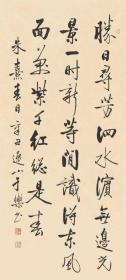 勝日尋芳泗水濱無邊光
景一時新等閒識得東風
面萬紫千紅總是春
朱熹春日辛丑